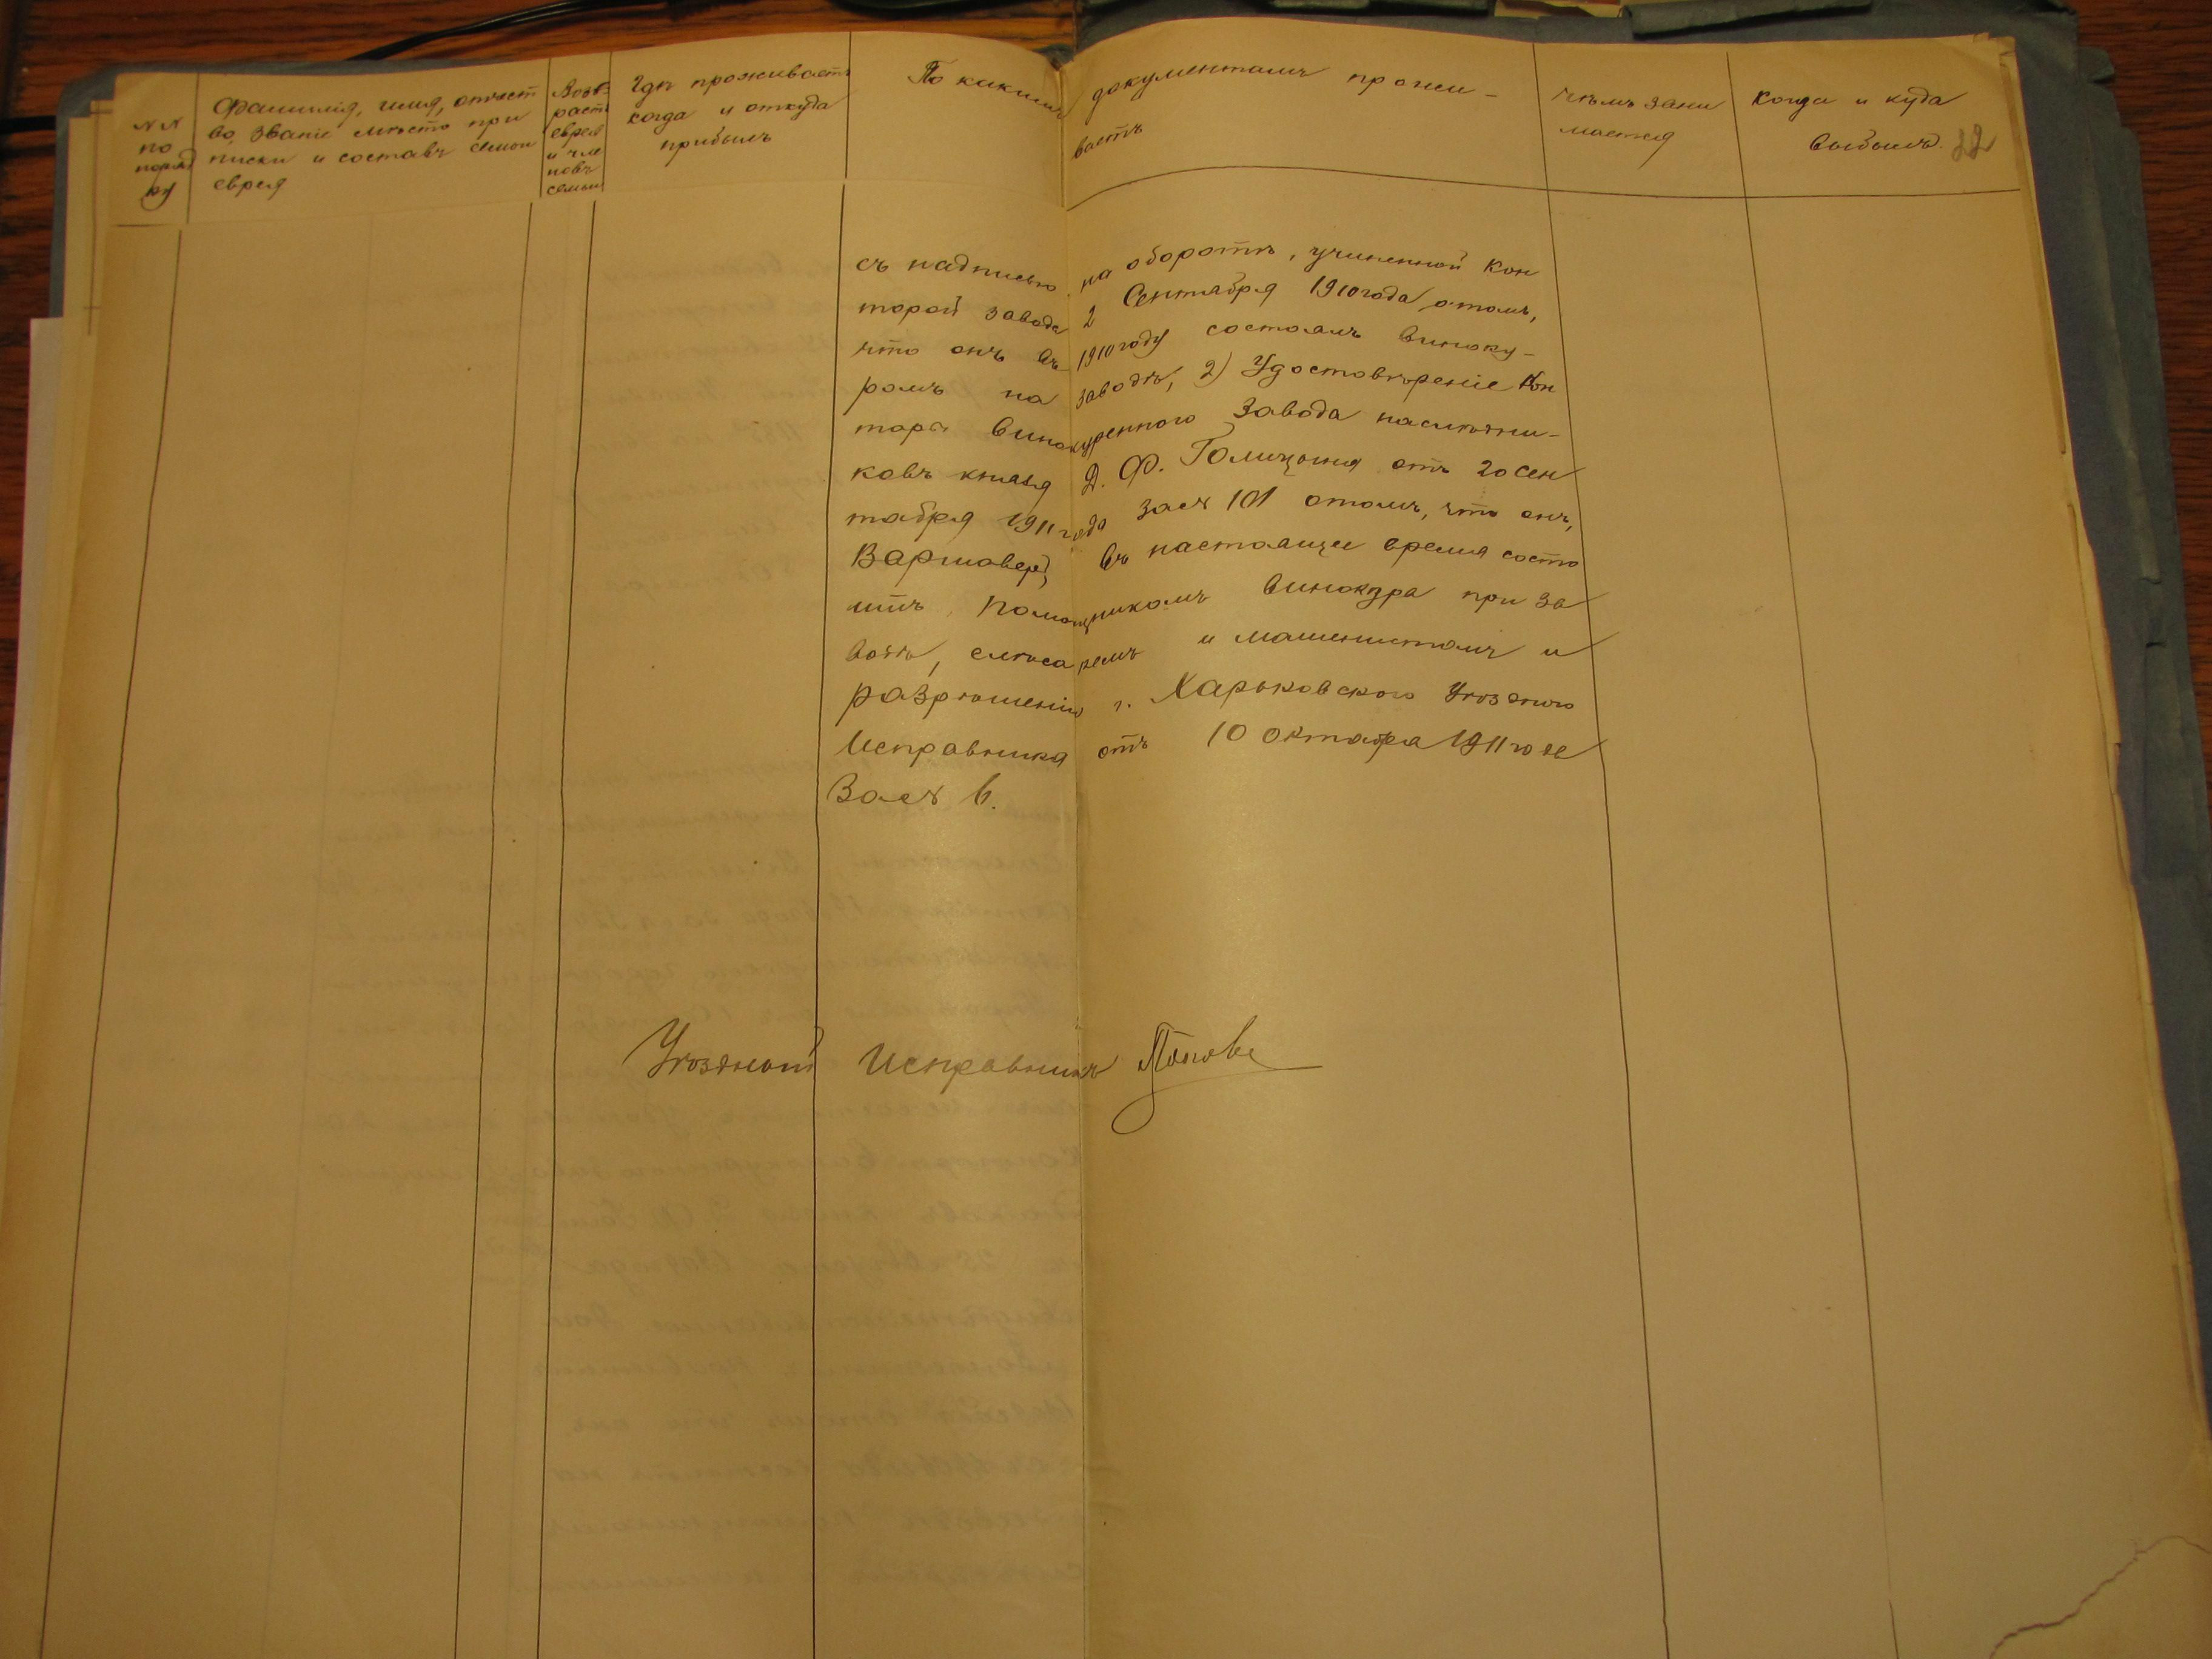 №№ по порядку
Фамилія, имя, отчест
во, званіе мѣсто при
писки и составъ семьи
еврея
Возъ-
растъ
еврея
и чле
новъ
семьи
Гдѣ проживаетъ
когда и откуда
прибылъ
По какимъ документамъ прожи-
ваетъ
чѣмъ зани
мается
Когда и куда
выбылъ.
22
съ надписью на оборотѣ, учиненной Кон
торой завода 2 Сентября 1910 года отомъ,
что онъ въ 1910 году состоялъ виноку-
ромъ на заводѣ, 2) Удостовѣреніе Кон
торы винокуреннаго завода наслѣдни-
ковъ князя Д. Ф. Голицына отъ 20 Сен
тября 1911 года за № 101 отомъ, что онъ,
Варшаверъ, въ настоящее время состо
итъ помощникомъ винокура при за
водѣ, слѣсаремъ и машинистомъ и
разрѣшенію г. Харьковскаго Уѣзднаго
Исправника отъ 10 Октября 1911 года
За № 6.
Уѣздный Исправникъ Поповъ